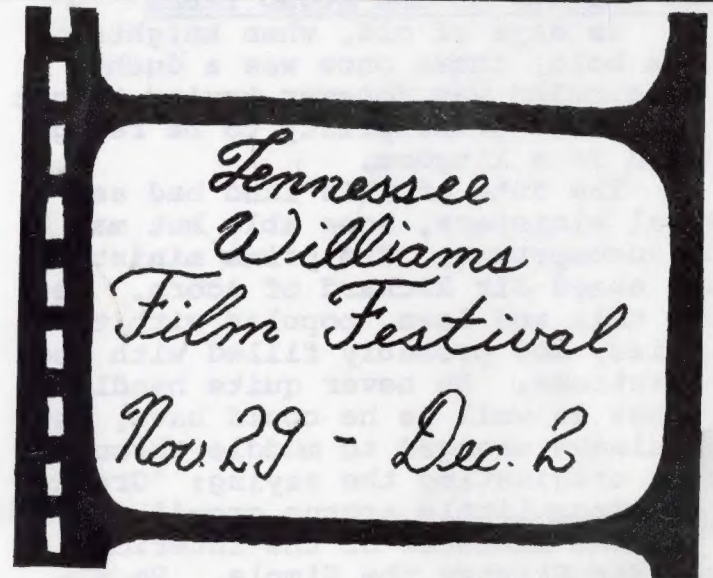 Tennessee
Williams
Film Festival
Nov. 29 - Dec. 2